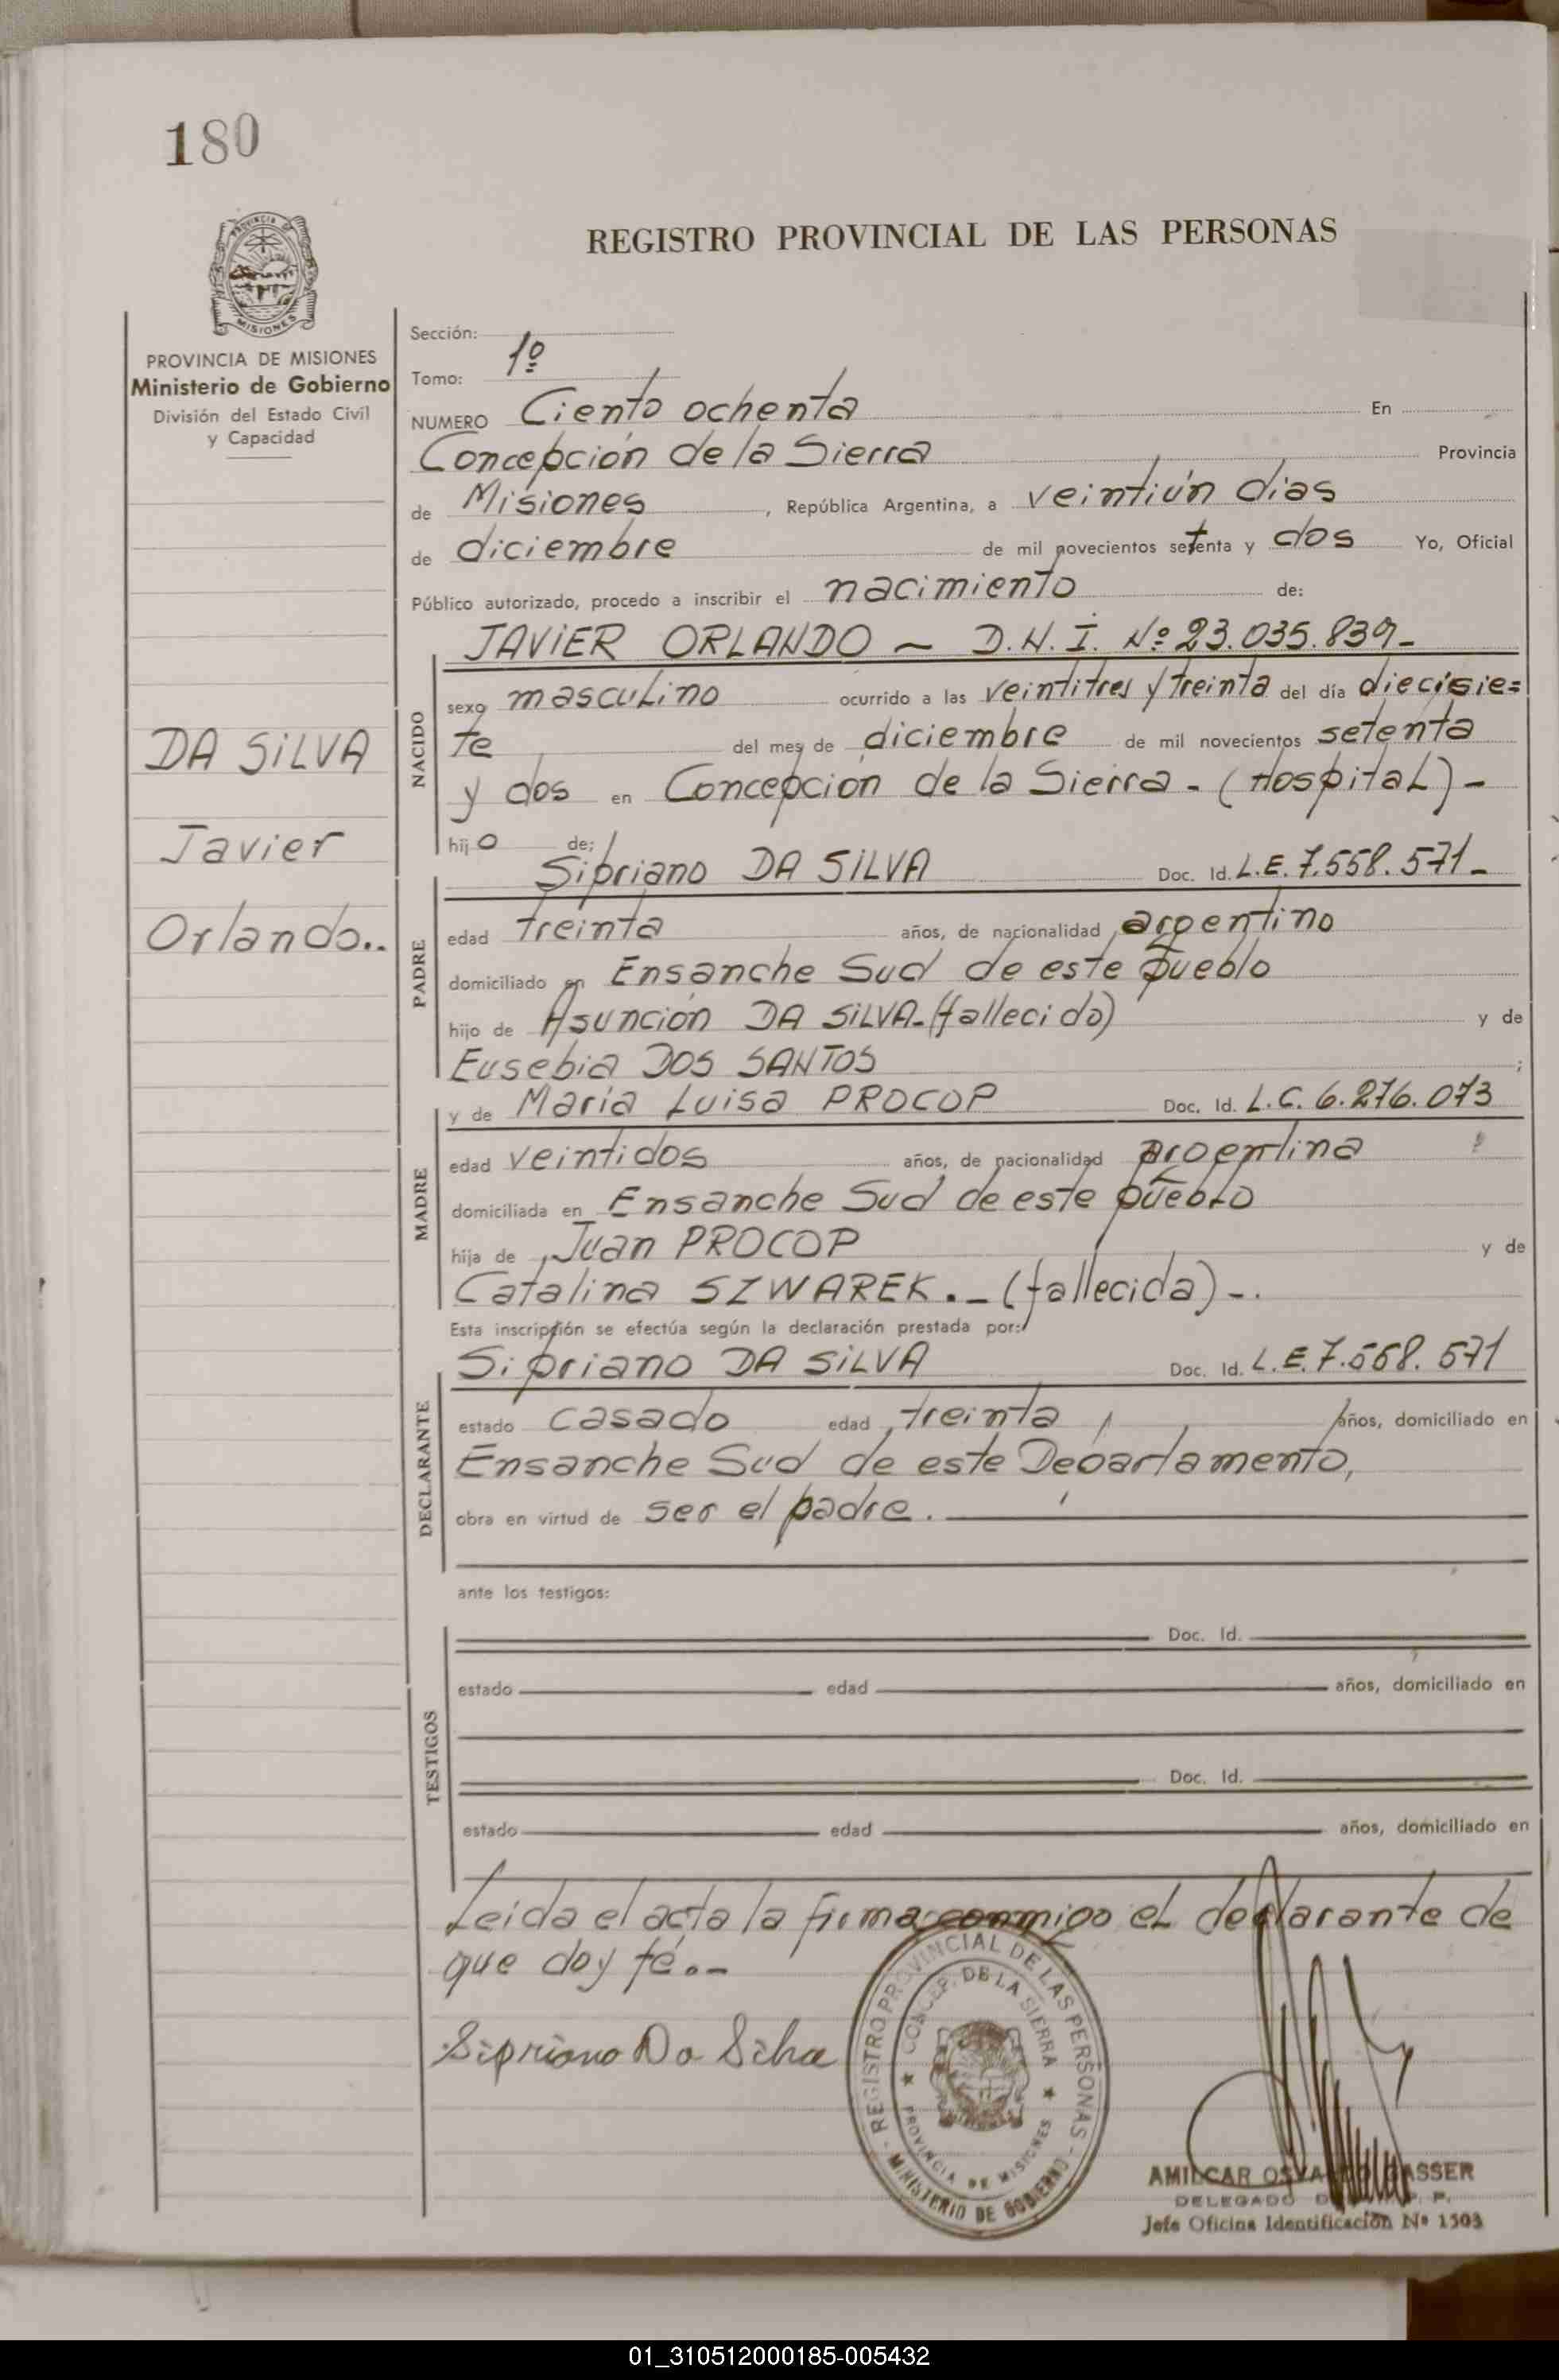 180
PROVINCIA
MISIONES
PROVINCIA DE MISIONES
Ministerio de Gobierno
División del Estado Civil
y Capacidad
DA SILVA
Javier
Orlando..
REGISTRO PROVINCIAL DE LAS PERSONAS
Sección:
Tomo: 1º
NUMERO Ciento ochenta En
Concepción de la Sierra Provincia
de Misiones, República Argentina, a veintiún dias
de diciembre de mil novecientos setenta y dos Yo, Oficial
Público autorizado, procedo a inscribir el nacimiento de:
JAVIER ORLANDO ~ D.N.I. Nº 23.035.839-
NACIDO
sexo masculino ocurrido a las veintitres y treinta del día diecisie=
te del mes de diciembre de mil novecientos setenta
y dos en Concepción de la Sierra - (Hospital) -
hijo de;
PADRE
Sipriano DA SILVA Doc. Id. L.E. 7.558.571-
edad treinta años, de nacionalidad argentino
domiciliado en Ensanche Sud de este pueblo
hijo de Asunción DA SILVA-(fallecido) y de
Eusebia DOS SANTOS ;
MADRE
y de Maria Luisa PROCOP Doc. Id. L.C. 6.276.073
edad veintidos años, de nacionalidad argentina
domiciliada en Ensanche Sud de este pueblo
hija de Juan PROCOP y de
Catalina SZWAREK.-(fallecida)-.
Esta inscripción se efectúa según la declaración prestada por:
DECLARANTE
Sipriano DA SILVA Doc. Id. L.E. 7.558.571
estado casado edad treinta años, domiciliado en
Ensanche Sud de este Departamento,
obra en virtud de ser el padre.
ante los testigos:
TESTIGOS
Doc. Id.
estado edad años, domiciliado en
Doc. Id.
estado edad años, domiciliado en
Leida el acta la firma conmigo el declarante de
que doy fé.-
Sipriano Da Silva
REGISTRO PROVINCIAL DE LAS PERSONAS - MINISTERIO DE GOBIERNO -
CONCEP. DE LA SIERRA
PROVINCIA DE MISIONES
AMILCAR OSVALDO GASSER
DELEGADO
Jefe Oficina Identificación Nº 1503
01_310512000185-005432